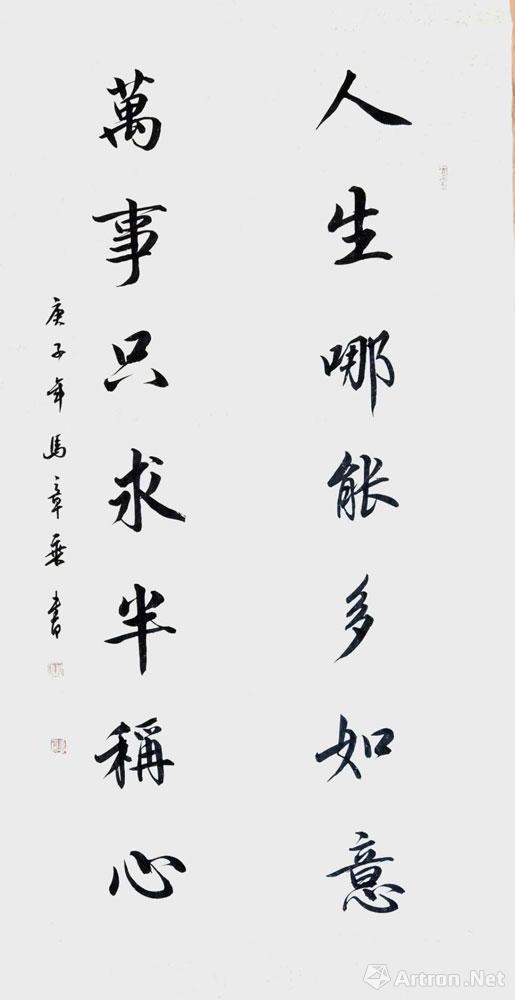 人生哪能多如意
萬事只求半稱心
庚子年馬章乘書
Artron.Net